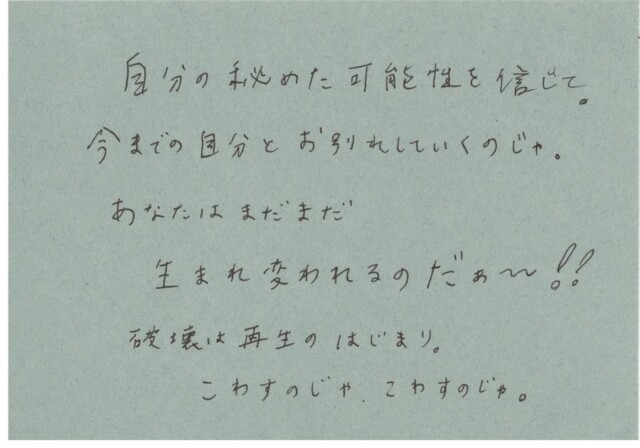 自分の秘めた可能性を信じて。
今までの自分とお別れしていくのじゃ。
あなたはまだまだ
生まれ変われるのだぁ〜!!
破壊は再生のはじまり。
こわすのじゃ、こわすのじゃ。